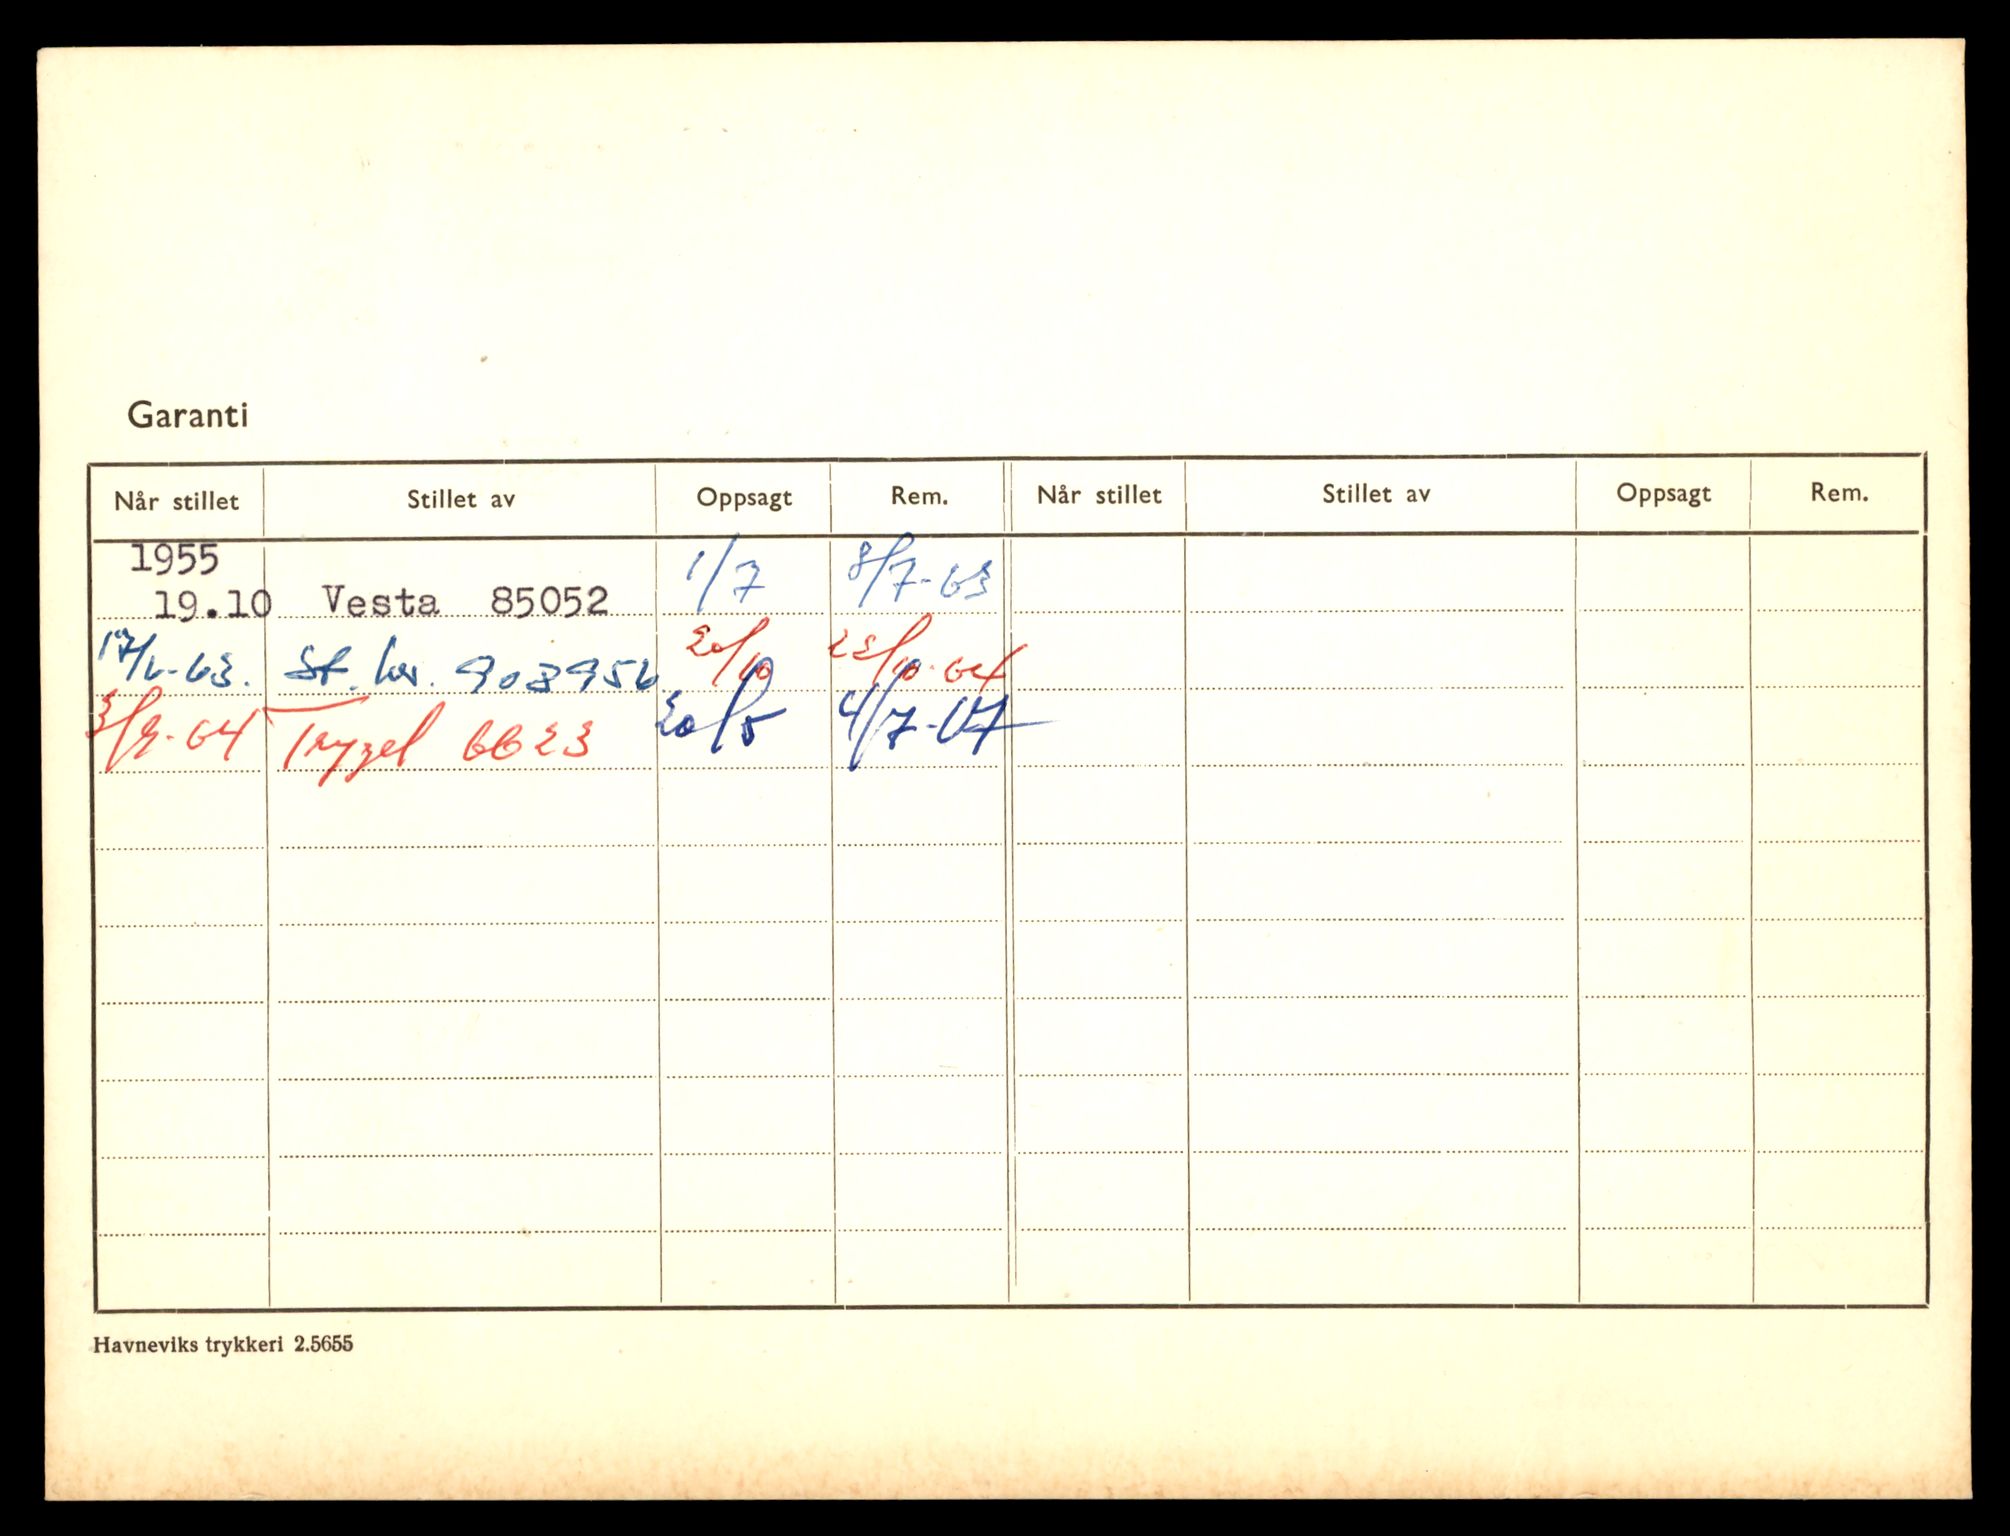 Garanti
Når stillet Stillet av Oppsagt Rem. Når stillet Stillet av Oppsagt Rem.
1955
19.10 Vesta 85052 1/7 8/7-63
17/6-63. St. br. 903956 20/10 23/10-64
3/9-64 Tryzel 6623 20/5 4/7-67
Havneviks trykkeri 2.5655